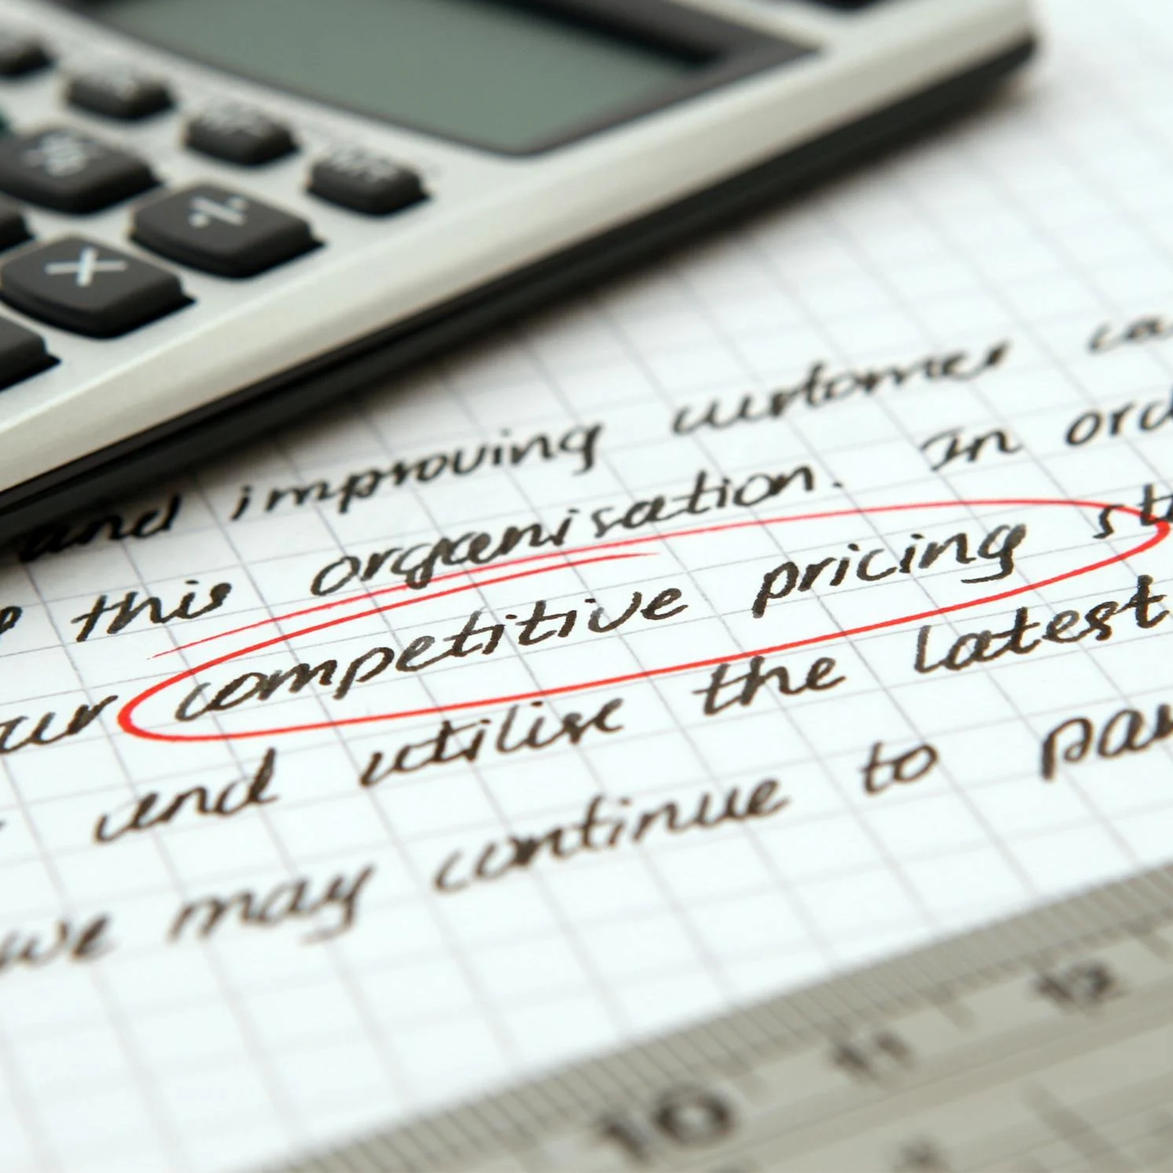 %
÷
×
and improving customer ca
this organisation. In ord
our competitive pricing st
and utilise the latest
we may continue to par
10 11 12